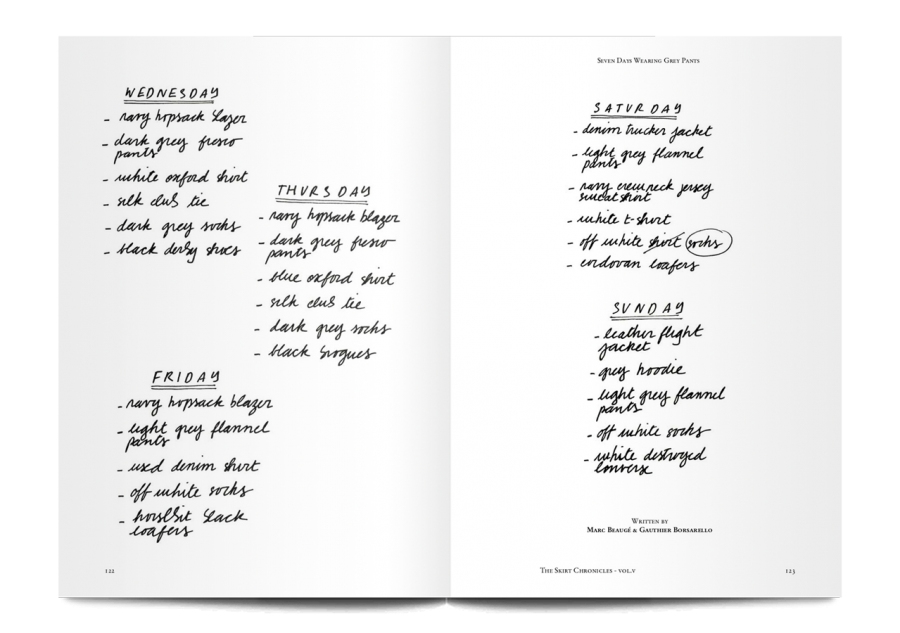 WEDNESDAY
- navy hopsack blazer
- dark grey fresco
pants
- white oxford shirt
- silk club tie
- dark grey socks
- black derby shoes
THURSDAY
- navy hopsack blazer
- dark grey fresco
pants
- blue oxford shirt
- silk club tie
- dark grey socks
- black brogues
FRIDAY
- navy hopsack blazer
- light grey flannel
pants
- used denim shirt
- off white socks
- horsebit black
loafers
122
Seven Days Wearing Grey Pants
SATURDAY
- denim trucker jacket
- light grey flannel
pants
- navy crewneck jersey
sweatshirt
- white t-shirt
- off white shirt socks
- cordovan loafers
SUNDAY
- leather flight
jacket
- grey hoodie
- light grey flannel
pants
- off white socks
- white destroyed
converse
Written by
Marc Beaugé & Gauthier Borsarello
The Skirt Chronicles - vol.v
123